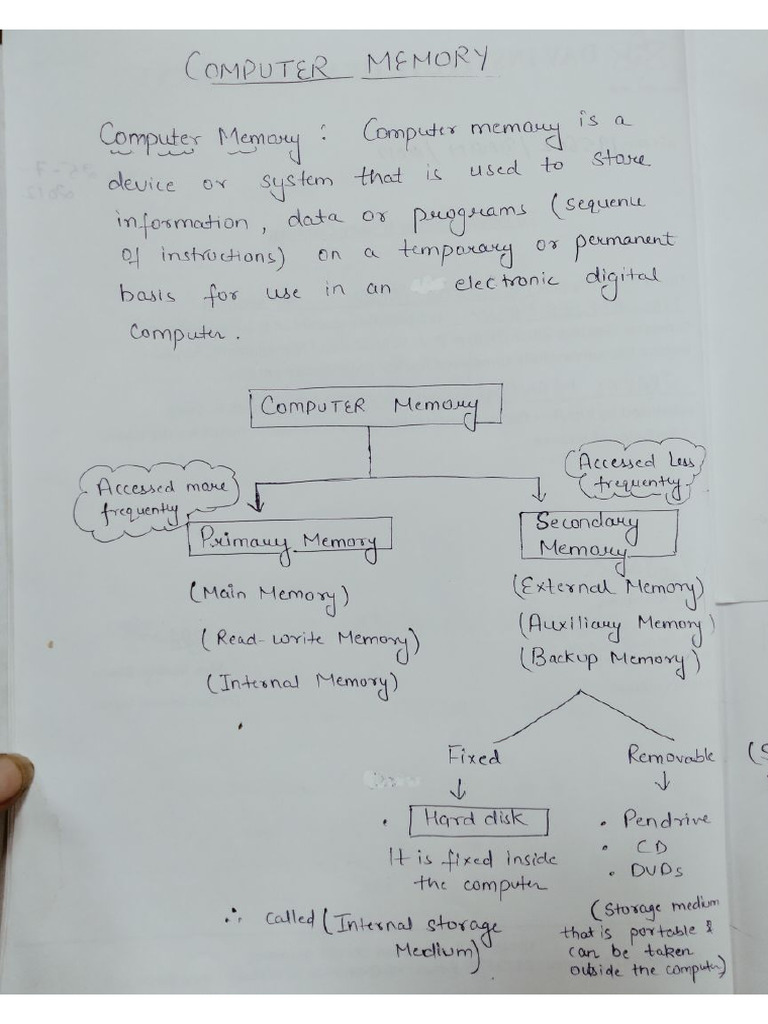 COMPUTER MEMORY
Computer Memory : Computer memory is a
device or system that is used to store
information, data or programs (sequence
of instructions) on a temporary or permanent
basis for use in an electronic digital
computer.
COMPUTER Memory
Accessed more
frequently
Accessed Less
frequently
Primary Memory
(Main Memory)
(Read-write Memory)
(Internal Memory)
Secondary
Memory
(External Memory)
(Auxiliary Memory)
(Backup Memory)
Fixed
↓
• Hard disk
It is fixed inside
the computer
∴ called (Internal storage
Medium)
Removable
↓
• Pendrive
• CD
• DVDs
(Storage medium
that is portable &
can be taken
outside the computer)